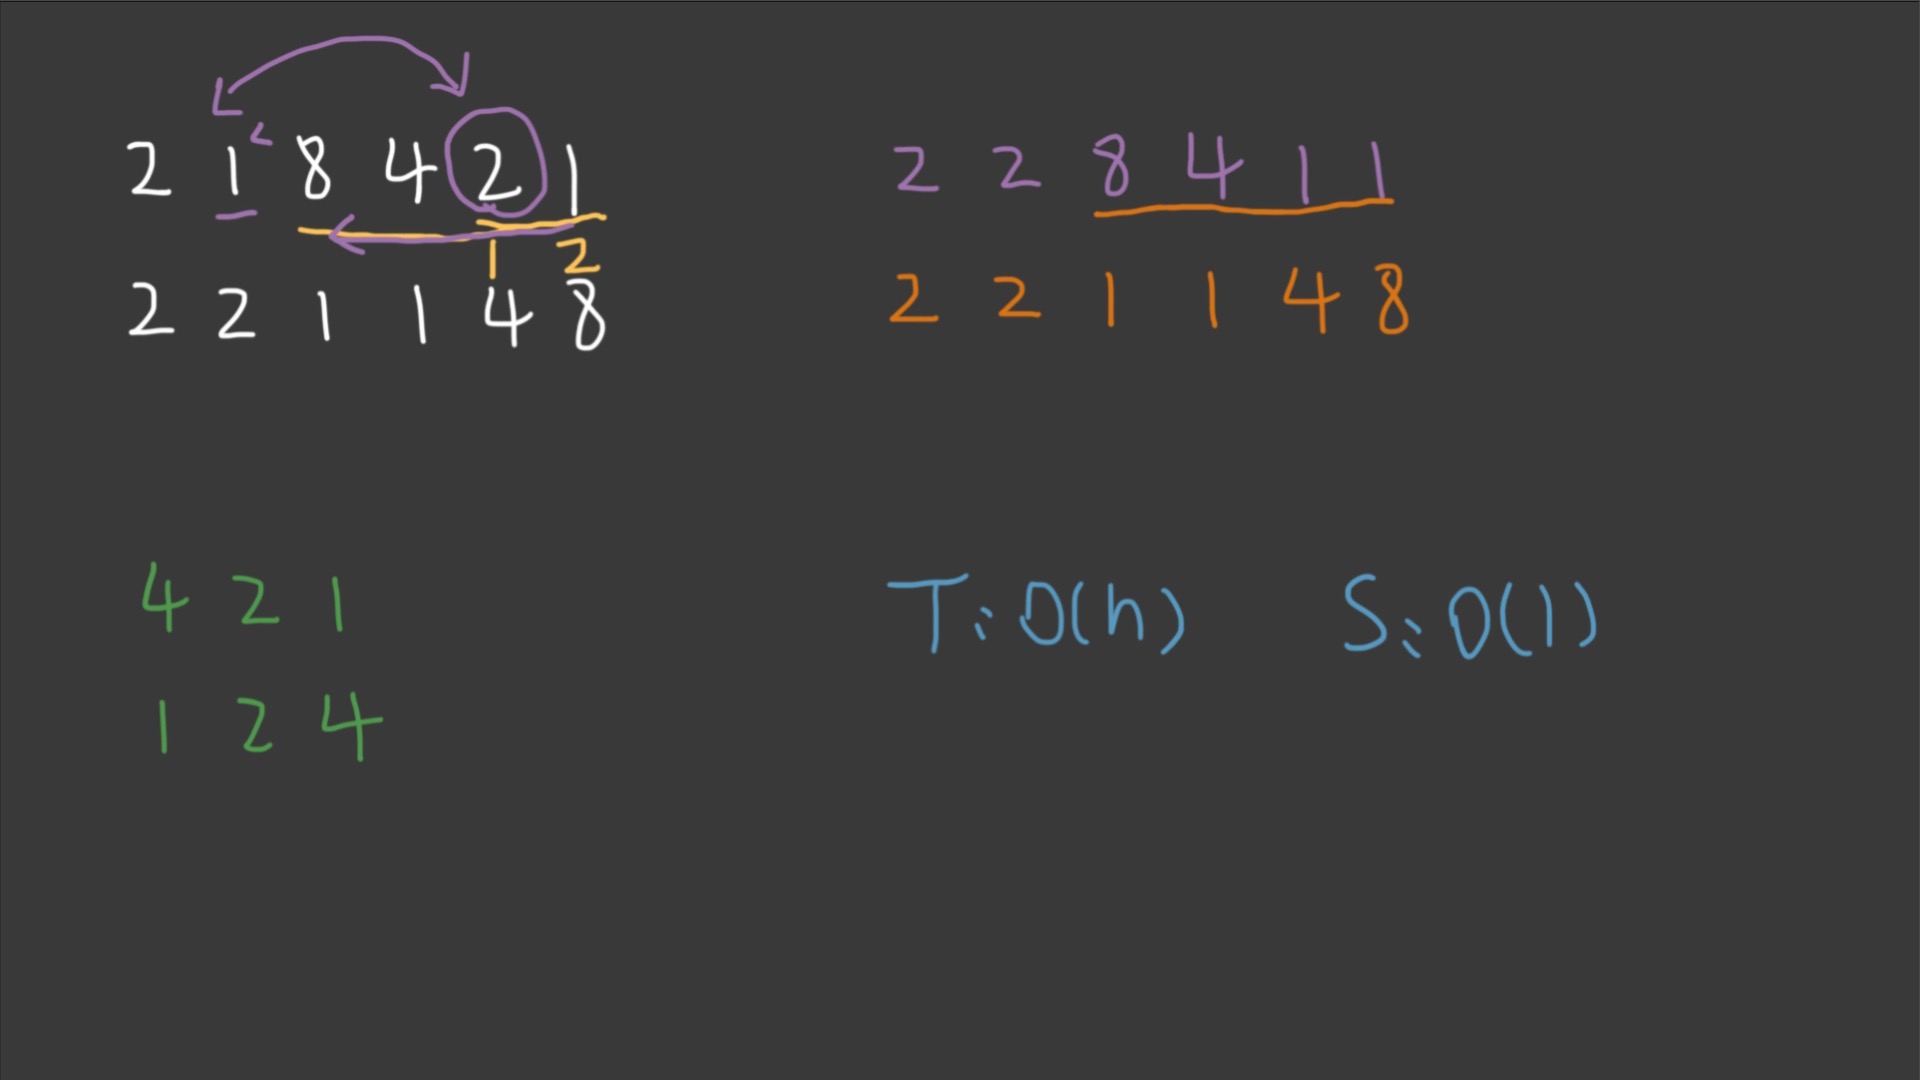 2 1 8 4 2 1
1 2
2 2 1 1 4 8
2 2 8 4 1 1
2 2 1 1 4 8
4 2 1
1 2 4
T: O(n) S: O(1)